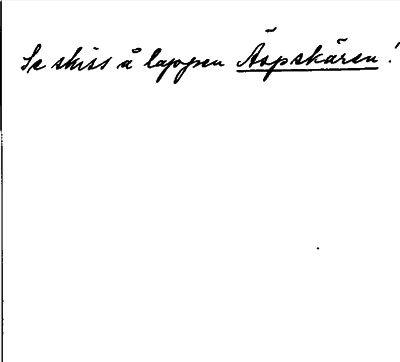 Se skiss å lappen Äspskären!